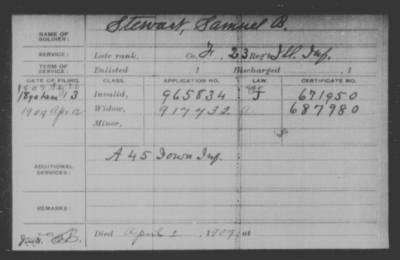 NAME OF SOLDIER: Stewart, Samuel B.
SERVICE: Late rank, Co. F, 23 Reg't Ill. Inf.
TERM OF SERVICE: Enlisted 1 Discharged 1
DATE OF FILING. CLASS. APPLICATION NO. LAW. CERTIFICATE NO.
13 Invalid, 965834 J 671950
1909 Apr. 12 Widow, 917732 687980
Minor,
ADDITIONAL SERVICES: A 45 Iowa Inf.
REMARKS:
Died April 2, 1909, at